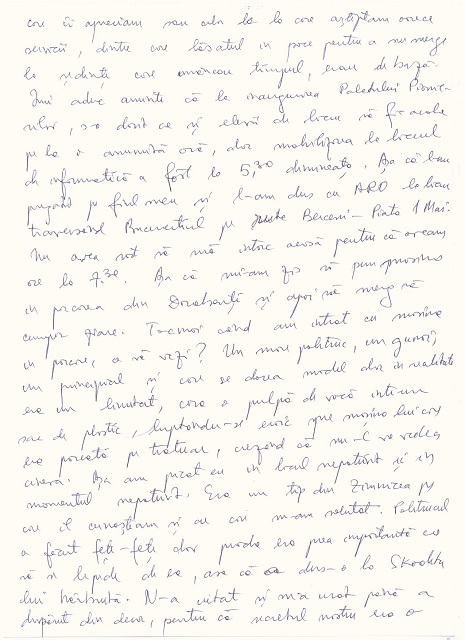 care îi apreciam sau celor la care așteptam orice
servicii, dintre care lăsatul în pace pentru a nu merge
la ședințe care omorau timpul, erau de bază.
Îmi aduc aminte că la inaugurarea Palatului Pionie-
rilor, s-a dorit ca și elevii de liceu să fie acolo
pe la o anumită oră, dar mobilizarea la liceul
de informatică a fost la 5,30 dimineața. Așa că l-am
pe fiul meu și l-am dus cu ARO la liceu
traversând Bucureștiul pe ruta Berceni – Piața 1 Mai.
Nu avea rost să mă întorc acasă pentru că aveam
ore la 7.30. Așa că mi-am zis să pun mașina
în parcarea din Dorobanți și apoi să merg să
cumpăr ziare. Tocmai când am intrat cu mașina
în parcare, ce să vezi? Un mare politruc, un gunoi,
un principial și care se dorea model dar în realitate
era un limitat, căra o pulpă de vacă într-un
sac de plastic, luptându-se spre mașina lui care
era parcată pe trotuar, crezând că nu-l va vedea
cineva. Așa am picat eu în locul nepotrivit și în
momentul nepotrivit. Era un tip din Zimnicea pe
care îl cunoșteam și cu care m-am salutat. Politrucul
a făcut fețe-fețe dar prada era prea importantă ca
să se lepede de ea, așa că a dus-o la Skodița
lui hărbuită. N-a uitat și m-a urât până a
dispărut din decor, pentru că secretul nostru era o